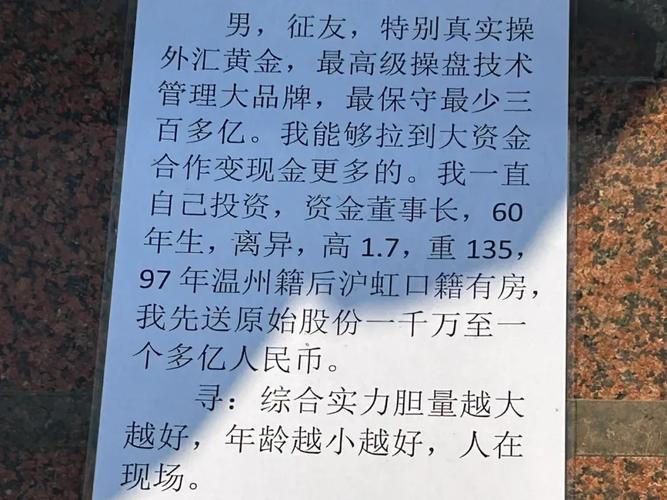 男，征友，特别真实操
外汇黄金，最高级操盘技术
管理大品牌，最保守最少三
百多亿。我能够拉到大资金
合作变现金更多的。我一直
自己投资，资金董事长，60
年生，离异，高 1.7，重 135，
97 年温州籍后沪虹口籍有房，
我先送原始股份一千万至一
个多亿人民币。
寻：综合实力胆量越大
越好，年龄越小越好，人在
现场。